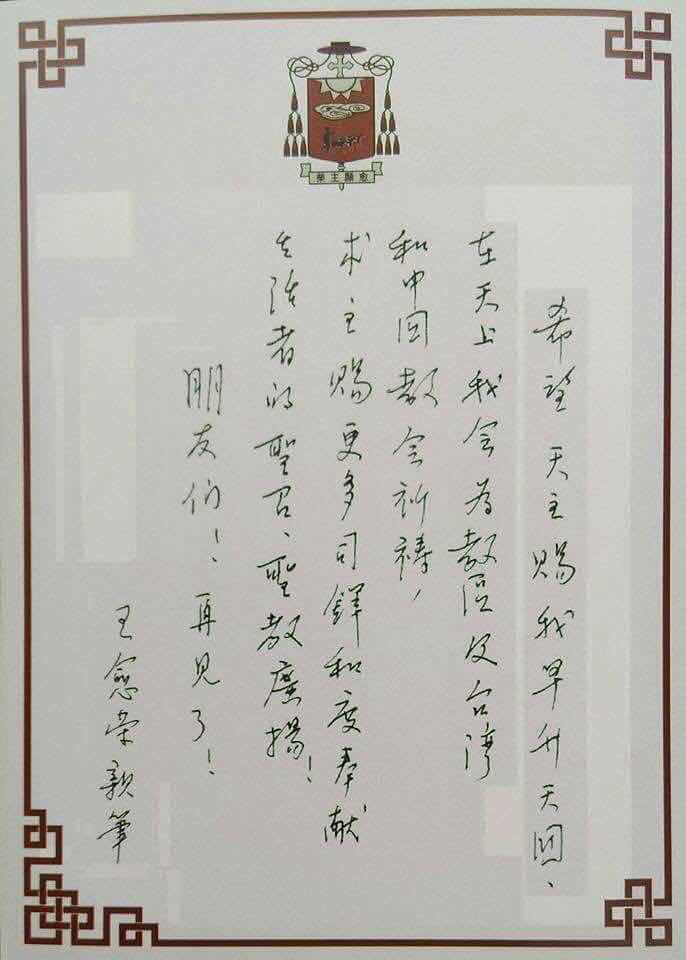 愈顯主榮
希望天主賜我早升天国、
在天上我会為教区及台湾
和中国教会祈祷，
求主賜更多司鐸和度奉献
生活者的聖召、聖教廣揚！
朋友们！再見了！
王愈荣親筆